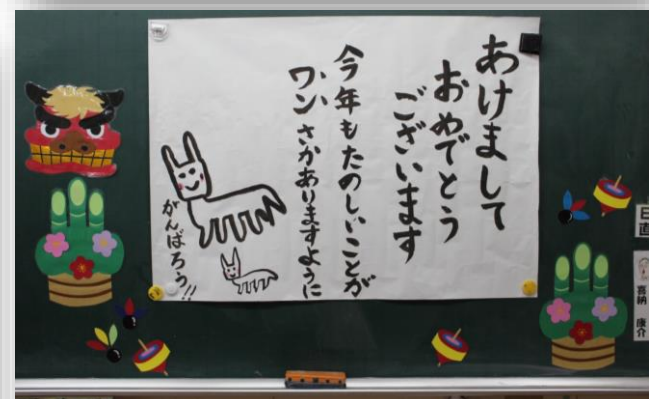 あけまして
おめでとう
ございます
今年もたのしいことが
ワンさかありますように
がんばろう!!
日直
喜納 康介